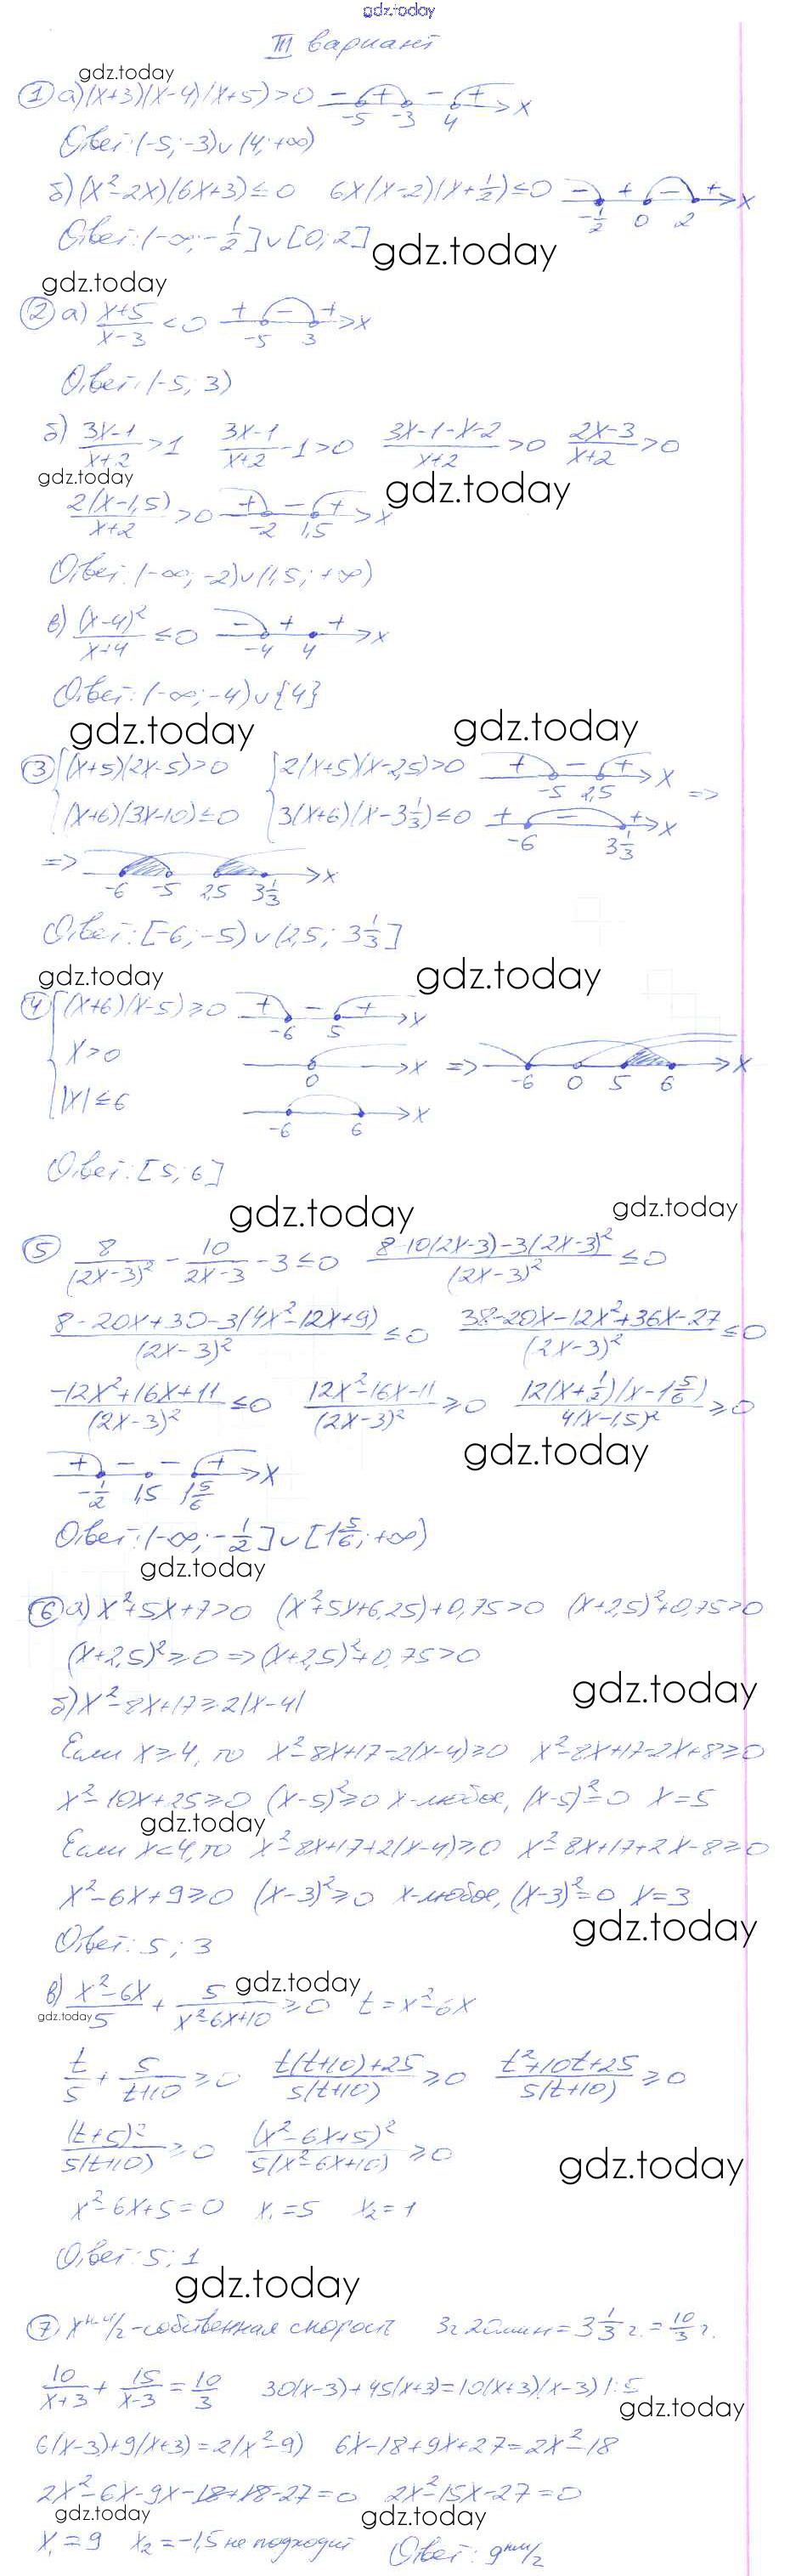 gdz.today
III вариант
gdz.today
① а) (x+3)(x-4)(x+5)>0 - + - + -5 -3 4 x
Ответ: (-5; -3)∪(4; +∞)
б) (x²-2x)(6x+3)≤0 6x(x-2)(x+1/2)≤0 - + - + -1/2 0 2 x
Ответ: (-∞; -1/2]∪[0; 2] gdz.today
gdz.today
② а) (x+5)/(x-3) <0 + - + -5 3 x
Ответ: (-5; 3)
б) (3x-1)/(x+2) >1 (3x-1)/(x+2) -1>0 (3x-1-x-2)/(x+2) >0 (2x-3)/(x+2) >0
gdz.today gdz.today
2(x-1,5)/(x+2) >0 + - + -2 1,5 x
Ответ: (-∞; -2)∪(1,5; +∞)
в) (x-4)²/(x+4) ≤0 - + + -4 4 x
Ответ: (-∞; -4)∪{4}
gdz.today gdz.today
③ {(x+5)(2x-5)>0 {2(x+5)(x-2,5)>0 + - + -5 2,5 x =>
(x+6)(3x-10)≤0 3(x+6)(x-3 1/3)≤0 + - + -6 3 1/3 x
=> -6 -5 2,5 3 1/3 x
Ответ: [-6; -5)∪(2,5; 3 1/3]
gdz.today gdz.today
④ {(x+6)(x-5)≥0 + - + -6 5 x
x>0 0 x => -6 0 5 6 x
|x|≤6 -6 6 x
Ответ: [5; 6]
gdz.today gdz.today
⑤ 8/(2x-3)² - 10/(2x-3) -3≤0 (8-10(2x-3)-3(2x-3)²)/(2x-3)² ≤0
(8-20x+30-3(4x²-12x+9))/(2x-3)² ≤0 (38-20x-12x²+36x-27)/(2x-3)² ≤0
(-12x²+16x+11)/(2x-3)² ≤0 (12x²-16x-11)/(2x-3)² ≥0 12(x+1/2)(x-1 5/6)/4(x-1,5)² ≥0
gdz.today
+ - - + -1/2 1,5 1 5/6 x
Ответ: (-∞; -1/2]∪[1 5/6; +∞)
gdz.today
⑥ а) x²+5x+7>0 (x²+5x+6,25)+0,75>0 (x+2,5)²+0,75>0
(x+2,5)²≥0 => (x+2,5)²+0,75>0
gdz.today
б) x²-8x+17≥2|x-4|
Если x≥4, то x²-8x+17-2(x-4)≥0 x²-8x+17-2x+8≥0
x²-10x+25≥0 (x-5)²≥0 x-любое, (x-5)²=0 x=5
gdz.today
Если x<4, то x²-8x+17+2(x-4)≥0 x²-8x+17+2x-8≥0
x²-6x+9≥0 (x-3)²≥0 x-любое, (x-3)²=0 x=3
gdz.today
Ответ: 5; 3
gdz.today
в) (x²-6x)/5 + 5/(x²-6x+10) ≥0 t=x²-6x
gdz.today
t/5 + 5/(t+10) ≥0 (t(t+10)+25)/5(t+10) ≥0 (t²+10t+25)/5(t+10) ≥0
(t+5)²/5(t+10) ≥0 (x²-6x+5)²/5(x²-6x+10) ≥0
gdz.today
x²-6x+5=0 x₁=5 x₂=1
Ответ: 5; 1
gdz.today
⑦ x км/ч -собственная скорость 3ч 20мин = 3 1/3 ч. = 10/3 ч.
10/(x+3) + 15/(x-3) = 10/3 30(x-3)+45(x+3)=10(x+3)(x-3) |:5
gdz.today
6(x-3)+9(x+3)=2(x²-9) 6x-18+9x+27=2x²-18
2x²-6x-9x-18+18-27=0 2x²-15x-27=0
gdz.today gdz.today
x₁=9 x₂=-1,5 не подходит Ответ: 9 км/ч